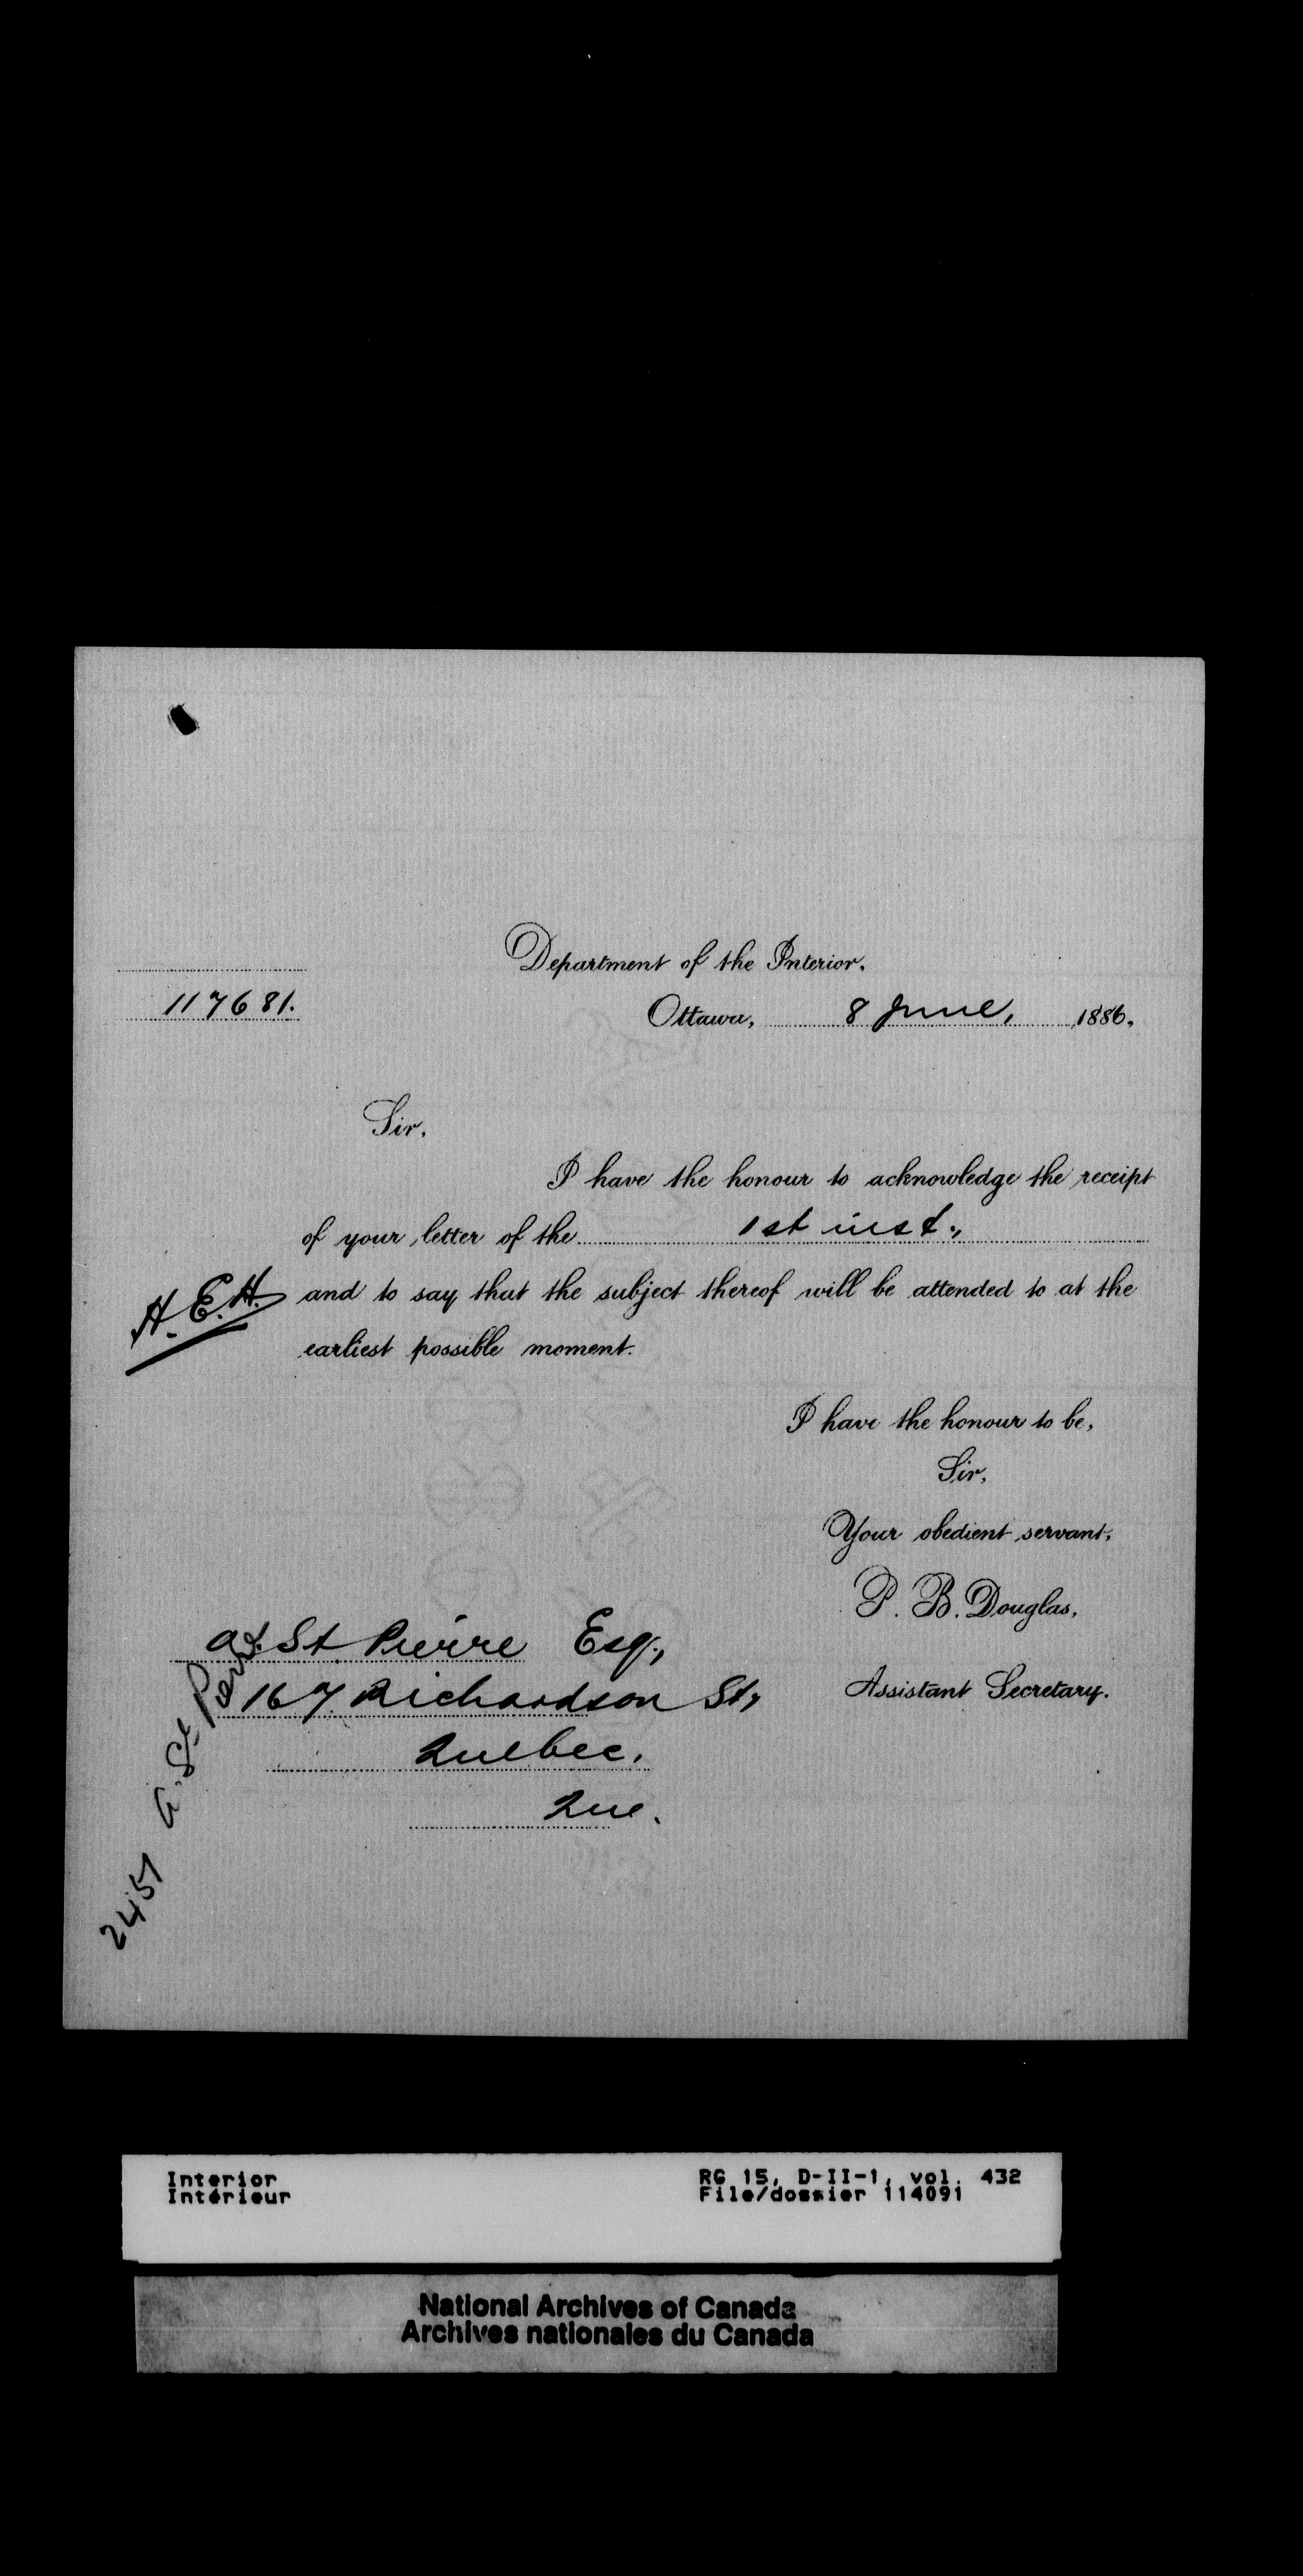 Department of the Interior.
117681.
Ottawa, 8 June, 1886.
Sir,
I have the honour to acknowledge the receipt
of your letter of the 1st inst.,
and to say that the subject thereof will be attended to at the
H. E. H.
earliest possible moment.
I have the honour to be,
Sir,
Your obedient servant,
P. B. Douglas,
Assistant Secretary.
St. Pierre Esq.,
167 Richardson St,
Quebec.
Que.
2451 A. St Pierre
Interior
Intérieur
RG 15, D-II-1, vol. 432
File/dossier 114091
National Archives of Canada
Archives nationales du Canada